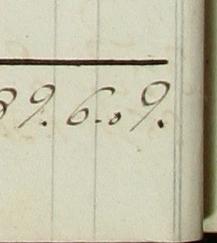 89. 6.. 9.